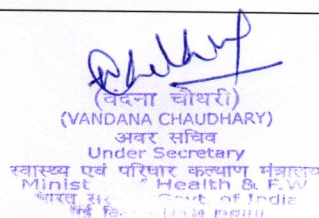 (वंदना चौधरी)
(VANDANA CHAUDHARY)
अवर सचिव
Under Secretary
स्वास्थ्य एवं परिवार कल्याण मंत्रालय
Minist Health & F.W
भारत Govt of India